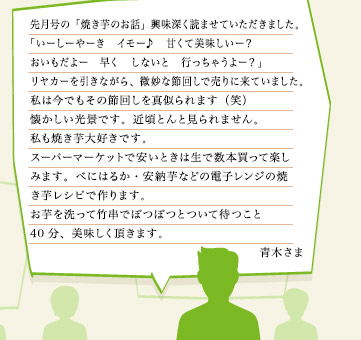 先月号の「焼き芋のお話」興味深く読ませていただきました。
「いーしーやーき　イモー♪　甘くて美味しいー？
おいもだよー　早く　しないと　行っちゃうよー？」
リヤカーを引きながら、微妙な節回しで売りに来ていました。
私は今でもその節回しを真似られます（笑）
懐かしい光景です。近頃とんと見られません。
私も焼き芋大好きです。
スーパーマーケットで安いときは生で数本買って楽し
みます。べにはるか・安納芋などの電子レンジの焼
き芋レシピで作ります。
お芋を洗って竹串でぼつぼつとついて待つこと
40 分、美味しく頂きます。
青木さま